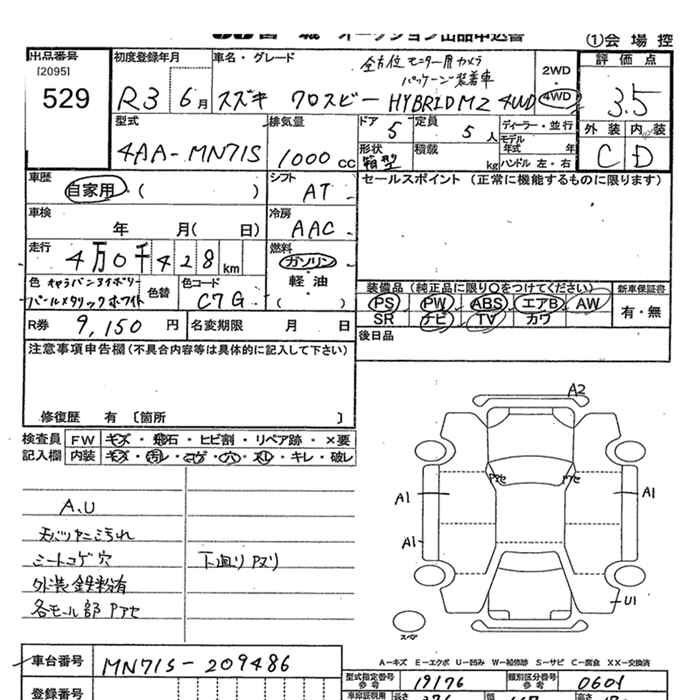 オークション出品申込書
①会場控
出品番号
[2095]
529
初度登録年月
R3 6月
車名・グレード
全方位モニター用カメラ
パッケージ装着車
スズキ クロスビー HYBRID MZ 4WD
2WD
4WD
評価点
3.5
外装 内装
C D
型式
4AA-MN71S
排気量
1000 cc
ドア 5
定員 5人
形状 箱型
積載 kg
ディーラー・並行
モデル年式 年
ハンドル 左・右
車歴
自家用・( )
シフト
AT
セールスポイント (正常に機能するものに限ります)
車検
年 月( 日)
冷房
AAC
走行
4万0千428km
燃料
ガソリン・
軽・油
( )
色 キャラバンアイボリー
パールメタリックホワイト
色替
色コード
C7G
装備品(純正品に限り○をつけてください)
新車保証書
PS PW ABS エアB AW
SR ナビ TV カワ
有・無
R券 9,150円
名変期限 月 日
後日品
注意事項申告欄(不具合内容等は具体的に記入して下さい)
修復歴 有 〔箇所 〕
検査員 FW キズ・飛石・ヒビ割・リペア跡・×要
記入欄 内装 キズ・汚レ・コゲ・穴・スレ・キレ・破レ
A.U
天バリヤニ汚れ
シートコゲ穴
外装鉄粉有
各モール部Pアセ
下廻りサビ
A2
Pアセ
Pアセ
A1
A1
A1
U1
スペア
A-キズ E-エクボ U-凹み W-補修跡 S-サビ C-腐食 XX-交換済
車台番号 MN71S-209486
型式指定番号 参考 19176
類別区分番号 参考 0604
登録番号
長さ
幅
高さ